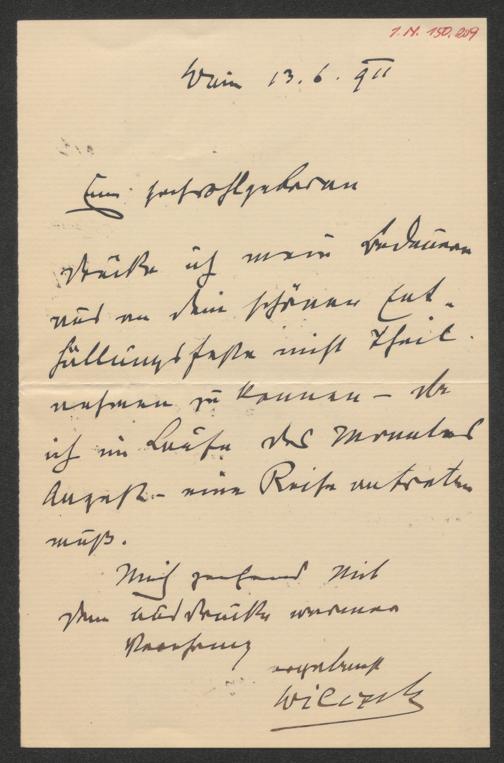 I. N. 150.209
Wien 13. 6. 911
Euer Hochwohlgeboren
drücke ich mein Bedauern
aus an dem schönen Ent-
hüllungsfeste nicht Theil
nehmen zu können – da
ich im Laufe des Monates
August – eine Reise antreten
muß.
Mich zeichnend mit
dem Ausdrucke warmer
Verehrung
ergebenst
Wilczek